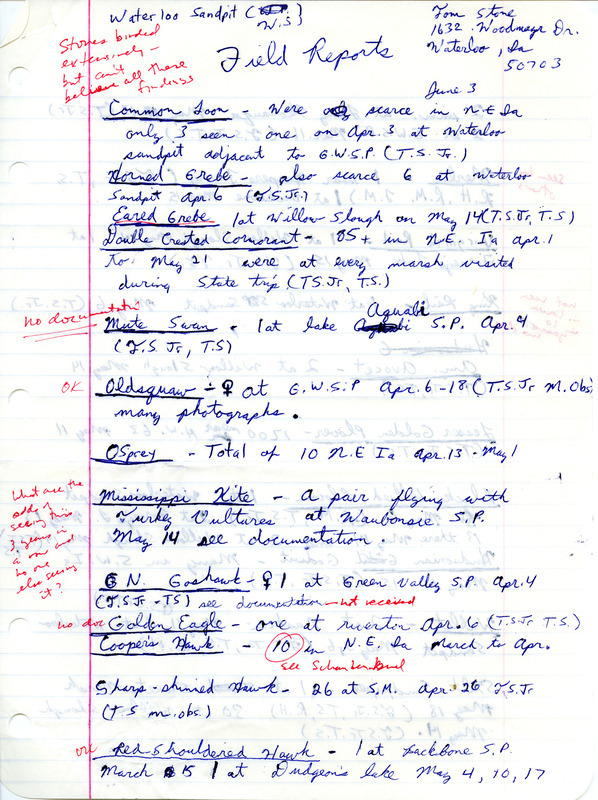 Waterloo Sandpit (W.S)
Tom Stone
1632 Woodmayr Dr.
Waterloo, Ia
50703
Stones birded
extensively -
but can't
believe all these
findings
Field Reports
June 3
Common Loon - Were scarce in N.E Ia
only 3 seen one on Apr. 3 at Waterloo
sandpit adjacent to G.W.S.P. (T.S. Jr.)
Horned Grebe - also scarce 6 at Waterloo
Sandpit Apr. 6 (T.S.Jr.)
Eared Grebe 1 at Willow Slough on May 14 (T.S.Jr, T.S)
Double Crested Cormorant - 85+ in N.E. Ia apr. 1
to May 21 were at every marsh visited
during State trip (T.S.Jr, T.S.)
no documentatn
Mute Swan - 1 at lake Aguabi S.P. Apr. 4
(T.S. Jr, T.S)
OK Oldsquaw - ♀ at G.W.S.P Apr. 6-18 (T.S.Jr M.Obs)
many photographs.
Osprey - Total of 10 N.E Ia Apr. 13 - May 1
What are the
odds of
seeing this
3 years in
a row and
no one
else seeing
it?
Mississippi Kite - a pair flying with
Turkey Vultures at Waubonsie S.P.
May 14 see documentation.
N. Goshawk - ♀ 1 at Green Valley S.P. Apr. 4
(T.S.Jr - TS) see documentation - not received
no doc Golden Eagle - one at riverton Apr. 6 (T.S.Jr T.S.)
Cooper's Hawk - 10 in N.E. Ia March to Apr.
see
Sharp-shinned Hawk - 26 at S.M. Apr. 26 T.S.Jr
(T.S m.obs.)
OK Red-Shouldered Hawk - 1 at Backbone S.P.
March 15 1 at Dudgeon's lake May 4, 10, 17